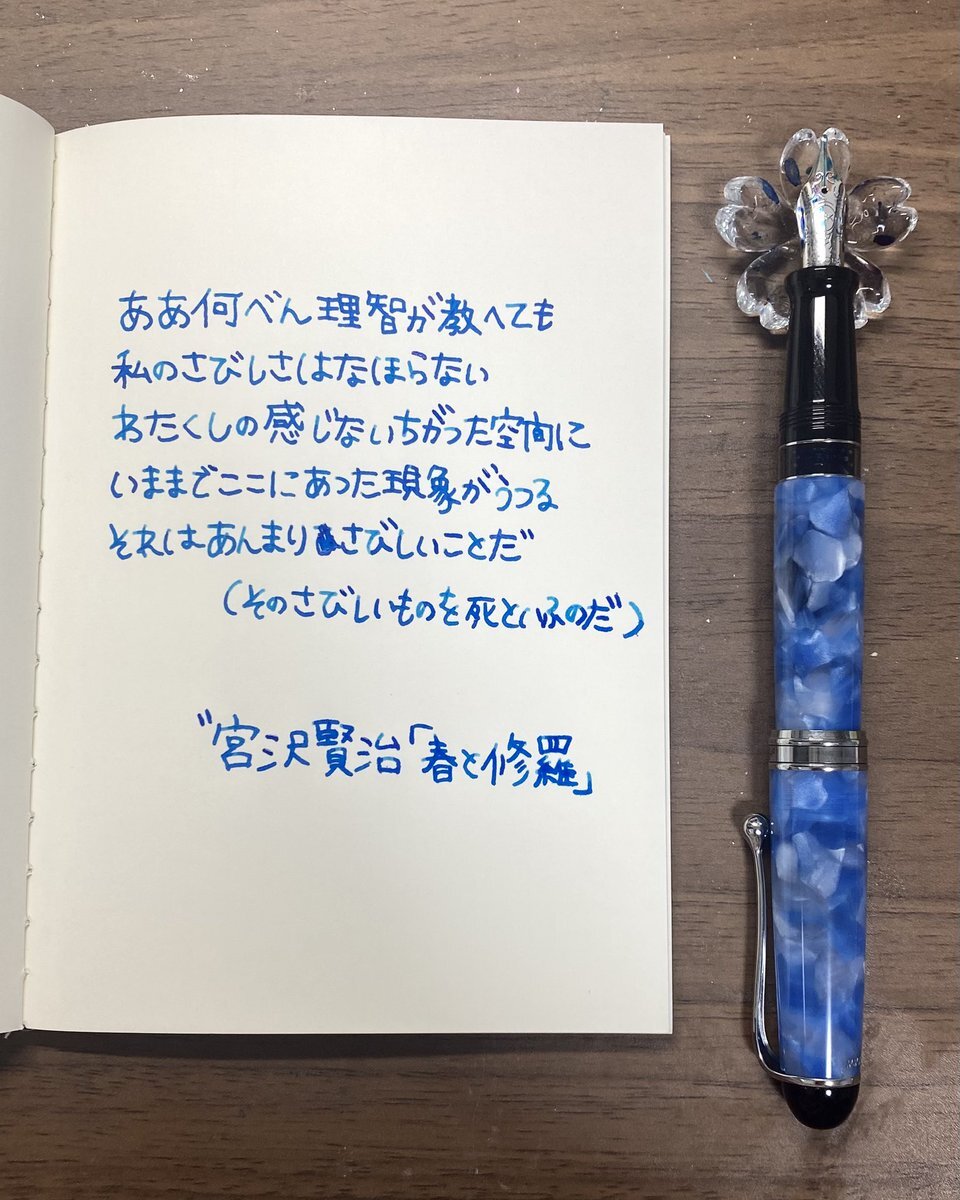 ああ何べん理智が教へても
私のさびしさはなほらない
わたくしの感じないちがった空間に
いままでここにあった現象がうつる
それはあんまりさびしいことだ
(そのさびしいものを死といふのだ)
〃宮沢賢治「春と修羅」